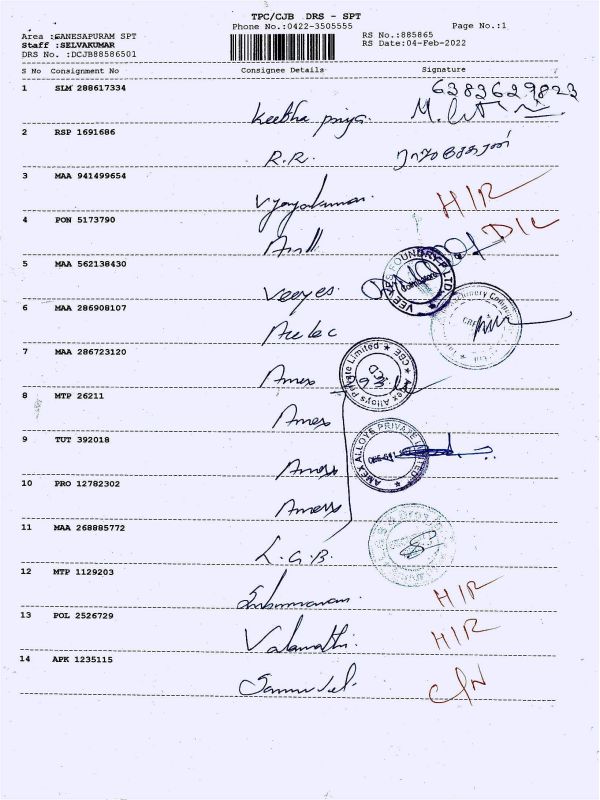 TPC/CJB DRS - SPT
Phone No.:0422-3505555 Page No.:1
Area :GANESAPURAM SPT
Staff :SELVAKUMAR
DRS No. :DCJB88586501
RS No.:885865
RS Date:04-Feb-2022
S No Consignment No Consignee Details Signature
1 SLM 288617334 Keetha priya. 6383629823
2 RSP 1691686 R.R.
3 MAA 941499654 Vijayakumar HIR
4 PON 5173790 DIL
5 MAA 562138430 Veeyes
VEE YES FOUNDRY P LTD
Coimbatore
6 MAA 286908107
7 MAA 286723120 Amex
Amex Alloys Private Limited ★ CBE ★
8 MTP 26211 Amex
9 TUT 392018 Amex
AMEX ALLOYS PRIVATE LIMITED
10 PRO 12782302 Amexs
11 MAA 268885772 L.G.B.
12 MTP 1129203 HIR
13 POL 2526729 Valarmathi HIR
14 APK 1235115 Samuvel.